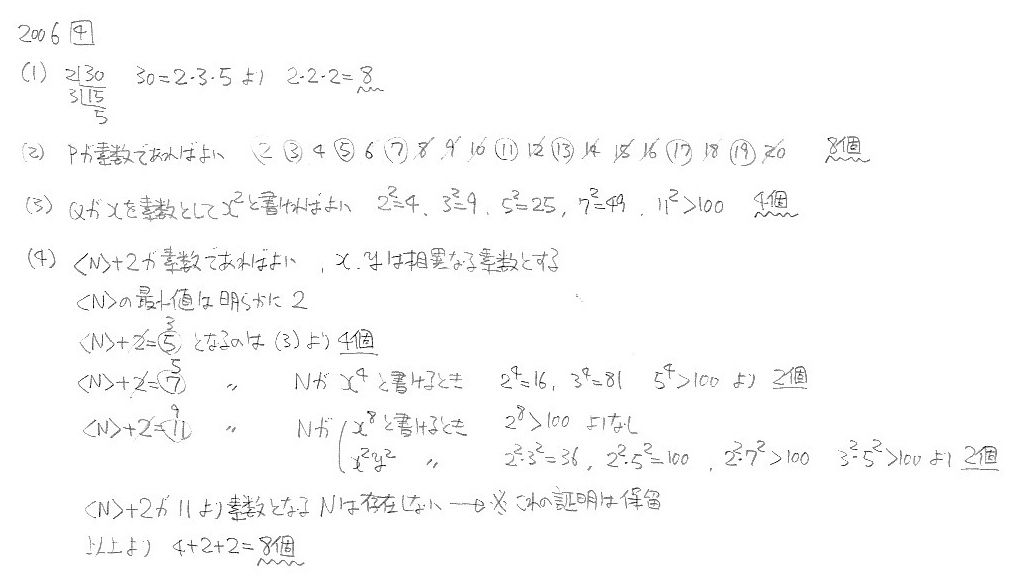 2006 4
(1) 2 30 30=2・3・5 より 2・2・2=8
3 15
5
(2) Pが素数であればよい 2 3 4 5 6 7 8 9 10 11 12 13 14 15 16 17 18 19 20 8個
(3) Qがxを素数としてx²と書ければよい 2²=4、3²=9、5²=25、7²=49、11²>100 4個
(4) <N>+2が素数であればよい、x、yは相異なる素数とする
<N>の最小値は明らかに2
3
<N>+2=5 となるのは(3)より4個
5
<N>+2=7 〃 Nがx⁴と書けるとき 2⁴=16、3⁴=81 5⁴>100より 2個
9
<N>+2=11 〃 Nが x⁸と書けるとき 2⁸>100 よりなし
x²y² 〃 2²・3²=36、2²・5²=100、2²・7²>100 3²・5²>100より 2個
<N>+2が11より素数となるNは存在しない→※これの証明は保留
以上より 4+2+2=8個